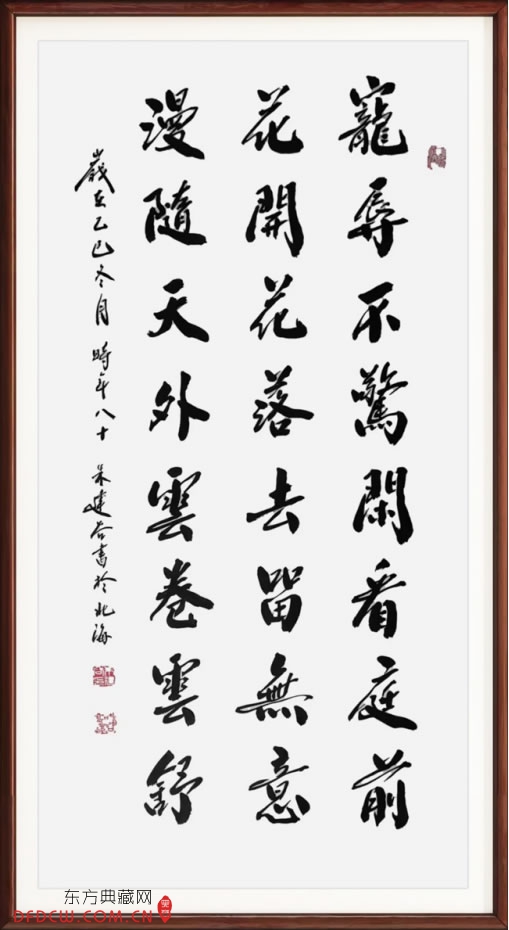 寵辱不驚閑看庭前
花開花落去留無意
漫隨天外雲卷雲舒
歲在乙巳冬月 時年八十 朱建谷書於北海
东方典藏网
DFDCW.COM.CN